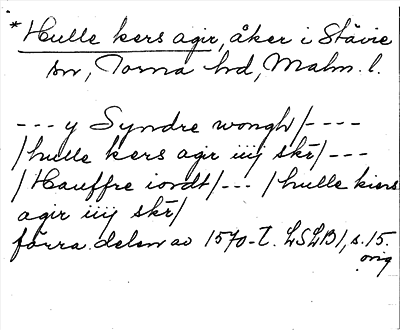 * Hulle kers agir, åker i Stävie
sn, Torna hd, Malm. l.
--- y Syndre wongh/----
/hulle kers agir iiij skr/---
/Hauffre iordt/--- /hulle kiers
agir iiij skr/
förra delen av 1570-t. LSLB1, s. 15.
orig